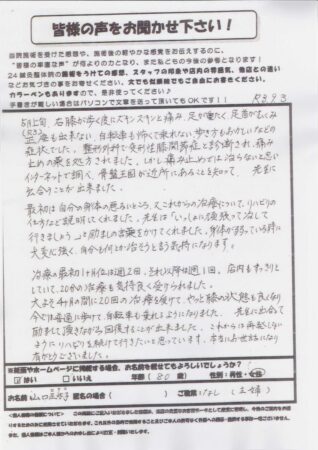 皆様の声をお聞かせ下さい！
当院施術を受けた感想や、施術後の軽やかな感覚をお伝えするのに、
"皆様の率直な声"が何よりの力となり、また私たちの今後の参考となります！
などお気づきの事をお寄せください。大変でも投稿用にもご自由にお寄せください。
カラーペンもありますので、是非使ってください♪
手書きが難しい場合はパソコンで文章を送って頂いてもＯＫです！！
R393
5月上旬 右膝が歩く度にズキンズキンと痛み、足が重たく、足首がむくみ
正座も出来ない、自転車も怖くて乗れない、歩き方もおかしいなどの
症状でした。整形外科で変形性膝関節症と診断され、痛み
止めの薬を処方されました。しかし痛み止めでは治らないと思い
インターネットで調べ、骨盤王国が近所にあることを知って、先生に
出会うことが出来ました。
最初は自分の身体の悪いところ、又これからの治療について、リハビリの
仕方など説明してくれました。先生は「いっしょに頑張って治して
行きましょう」と励ましの言葉をかけてくれました。身体が弱っている時に
大変心強く、自分も何とか治そうと言う気持になります。
治療の最初1ヶ月位は週2回、それ以降は週1回、店内もすっきりと
していて、20分の治療も気持良く受けられました。
大よそ4ヶ月間に20回の治療を受けて、やっと膝の状態も良くなり
今では普通に歩けて、自転車も乗れるようになりました。先生に出会って
励まして頂きながら回復することが出来ました。これからは再発しない
ようにリハビリを続けて行きたいと思っています。本当にお世話になり
有がとうございました。
※紙面やホームページに掲載する場合、お名前を載せてもよろしいでしょうか？
はい いいえ 年齢（80 歳） 性別：男性・女性
お名前 匿名の場合（ ） ご職業 なし（主婦）